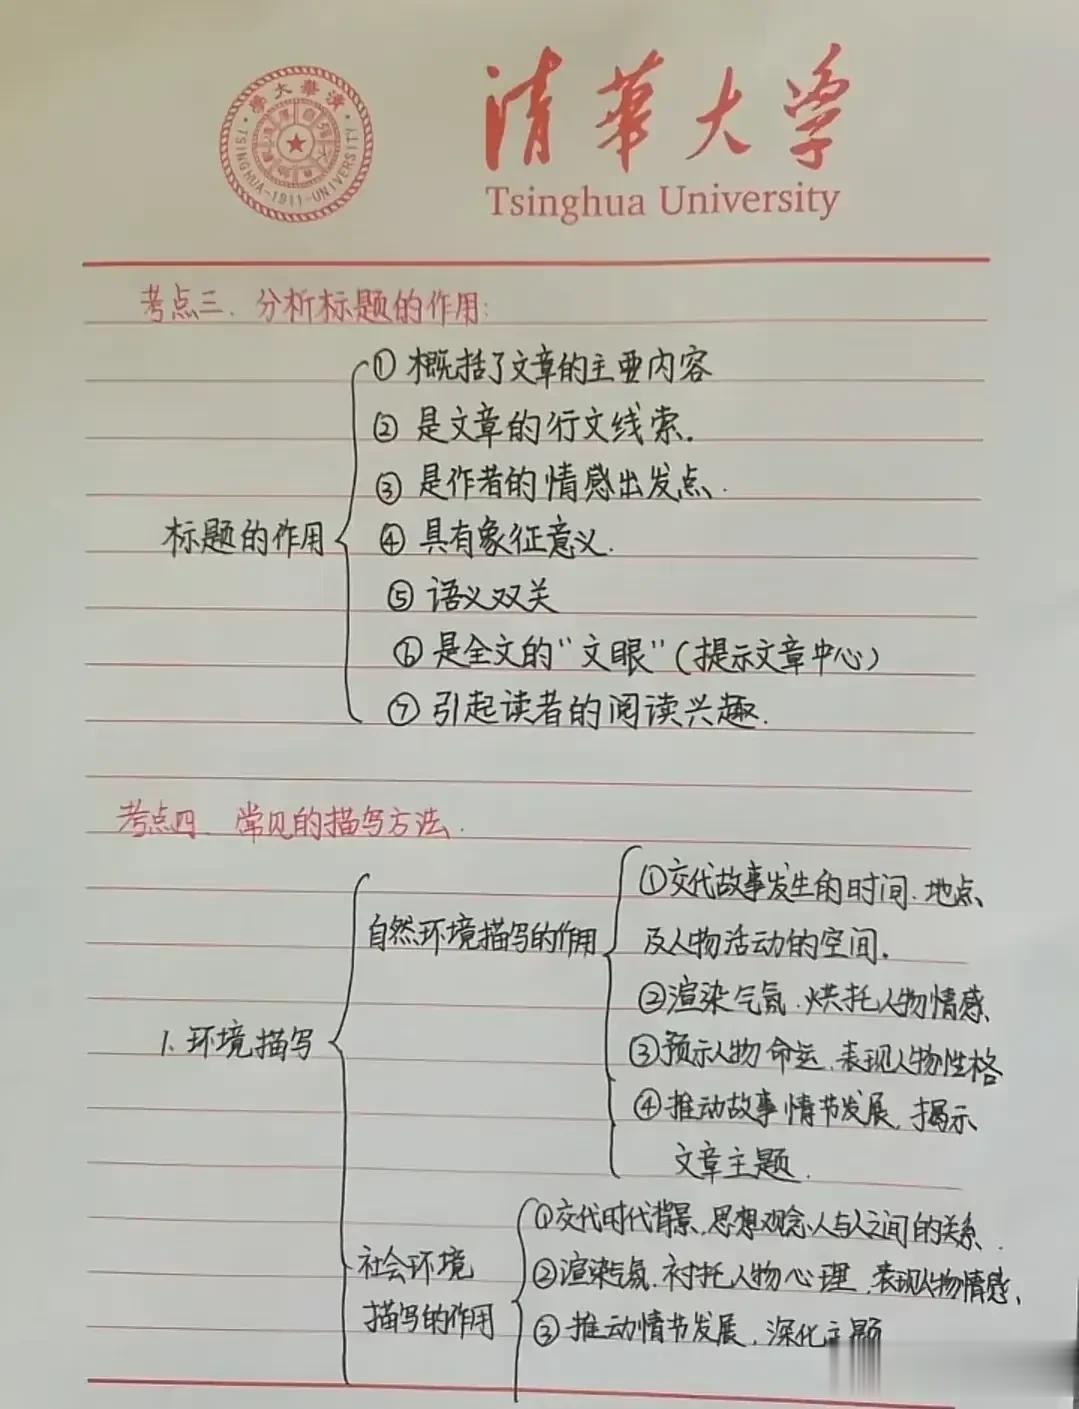 清華大學
TSINGHUA-1911-UNIVERSITY
清華大学
Tsinghua University
考点三、分析标题的作用:
标题的作用
①概括了文章的主要内容
②是文章的行文线索.
③是作者的情感出发点.
④具有象征意义.
⑤语义双关
⑥是全文的“文眼”(提示文章中心)
⑦引起读者的阅读兴趣.
考点四、常见的描写方法.
1.环境描写
自然环境描写的作用
①交代故事发生的时间、地点、
及人物活动的空间.
②渲染气氛、烘托人物情感、
③预示人物命运、表现人物性格
④推动故事情节发展,揭示
文章主题.
社会环境
描写的作用
①交代时代背景、思想观念、人与人之间的关系.
②渲染气氛、衬托人物心理、表现人物情感、
③推动情节发展、深化主题